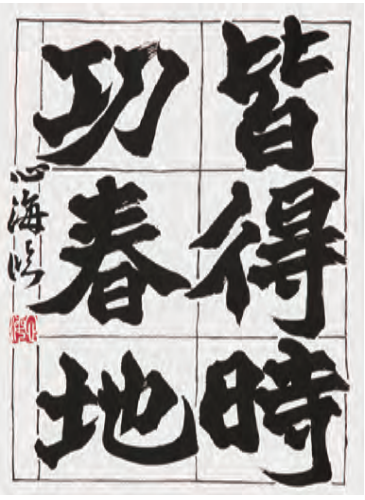 皆得時
功春地
心海临